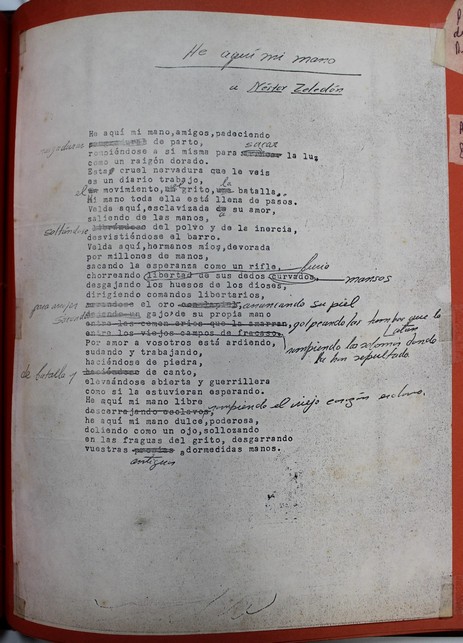 He aquí mi mano
a Néstor Zeledón
He aquí mi mano,amigos,padeciendo
de parto,
sacar
rompiéndose a sí misma para la luz
como un raigón dorado.
Esta cruel nervadura que le veis
es un diario trabajo,
el la
movimiento, grito, batalla,
Mi mano toda ella está llena de pasos.
Vedla aquí,esclavizada a su amor,
saliendo de las manos,
soltándose del polvo y de la inercia,
desvistiéndose el barro.
Vedla aquí,hermanos míos,devorada
por millones de manos,
sacando la esperanza como un rifle,
chorreando libertad de sus dedos curvados, mansos
desgajando los huesos de los dioses,
dirigiendo comandos libertarios,
el oro arrancando su piel
para mejor
gajo de su propia mano
entre los que la amarran, golpeando los hombros que lo
entre los viejos campos de fracaso.
Por amor a vosotros está ardiendo,
rompiendo las donde
sudando y trabajando,
le han sepultado
haciéndose de piedra,
de batalla y haciéndose de canto,
elevándose abierta y guerrillera
como si la estuvieran esperando.
He aquí mi mano libre
descerrejando esclavos, rompiendo el viejo corazón esclavo.
he aquí mi mano dulce,poderosa,
doliendo como un ojo,sollozando
en las fraguas del grito, desgarrando
vuestras ,dormedidas manos.
antiguas